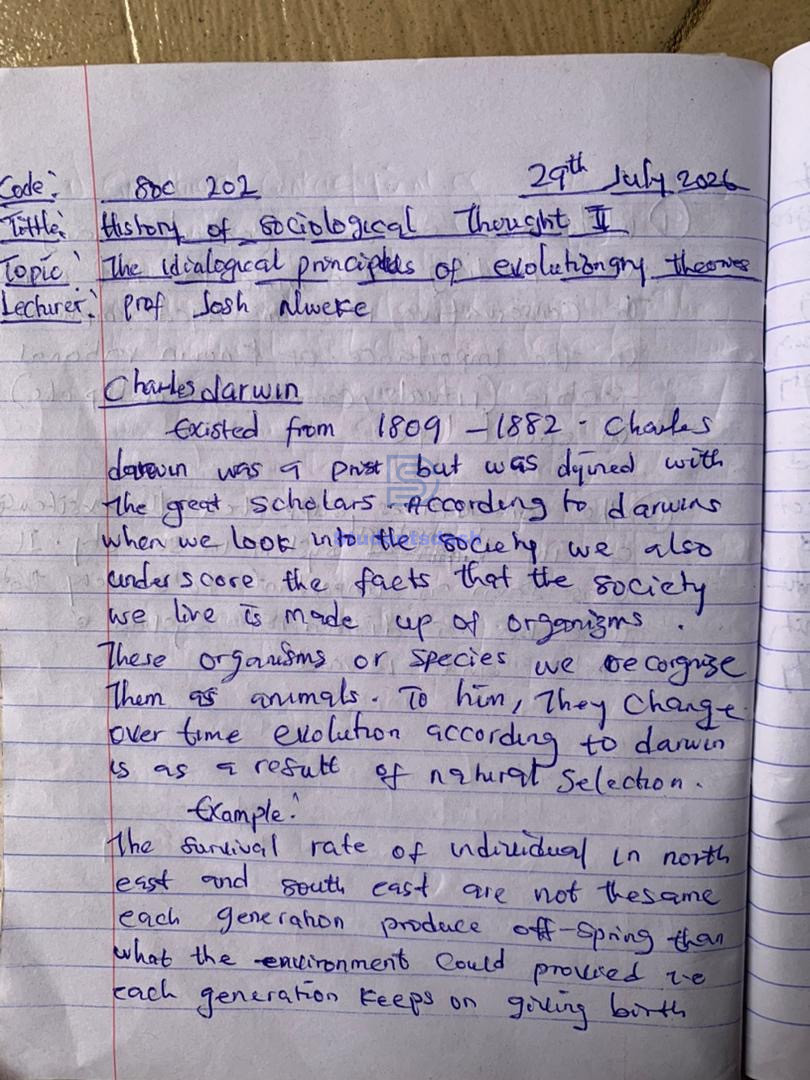 Code: Soc 202 29th July 2026
Tittle: History of sociological Thought II
Topic: The idialogical principles of evolutionary theories
Lecturer: Prof Josh Nweke
Charles darwin
Existed from 1809 – 1882. Charles
darwin was a priest but was dyined with
the great scholars. According to darwins
when we look into the society we also
underscore the facts that the society
we live is made up of organizms.
These organisms or species we recorgnize
them as animals. To him, They Change
over time evolution according to darwin
is as a result of natural Selection.
Example:
The survival rate of individual in north
east and south east are not thesame
each generation produce off-spring than
what the environment Could provied i-e
each generation keeps on giving birth